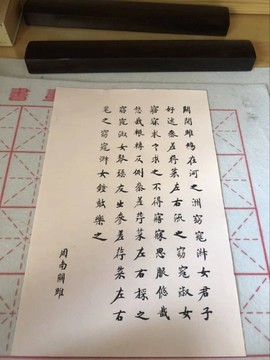 關關雎鳩在河之洲窈窕淑女君子
好逑參差荇菜左右流之窈窕淑女
寤寐求之求之不得寤寐思服悠哉
悠哉輾轉反側參差荇菜左右採之
窈窕淑女琴瑟友之參差荇菜左右
芼之窈窕淑女鐘鼓樂之
周南關雎
書